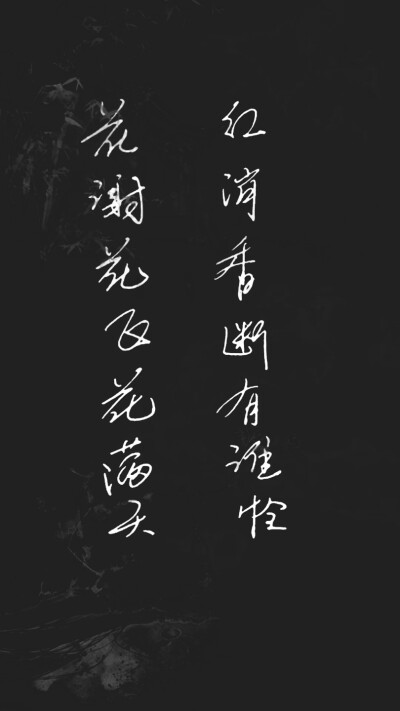 花谢花飞花满天
红消香断有谁怜